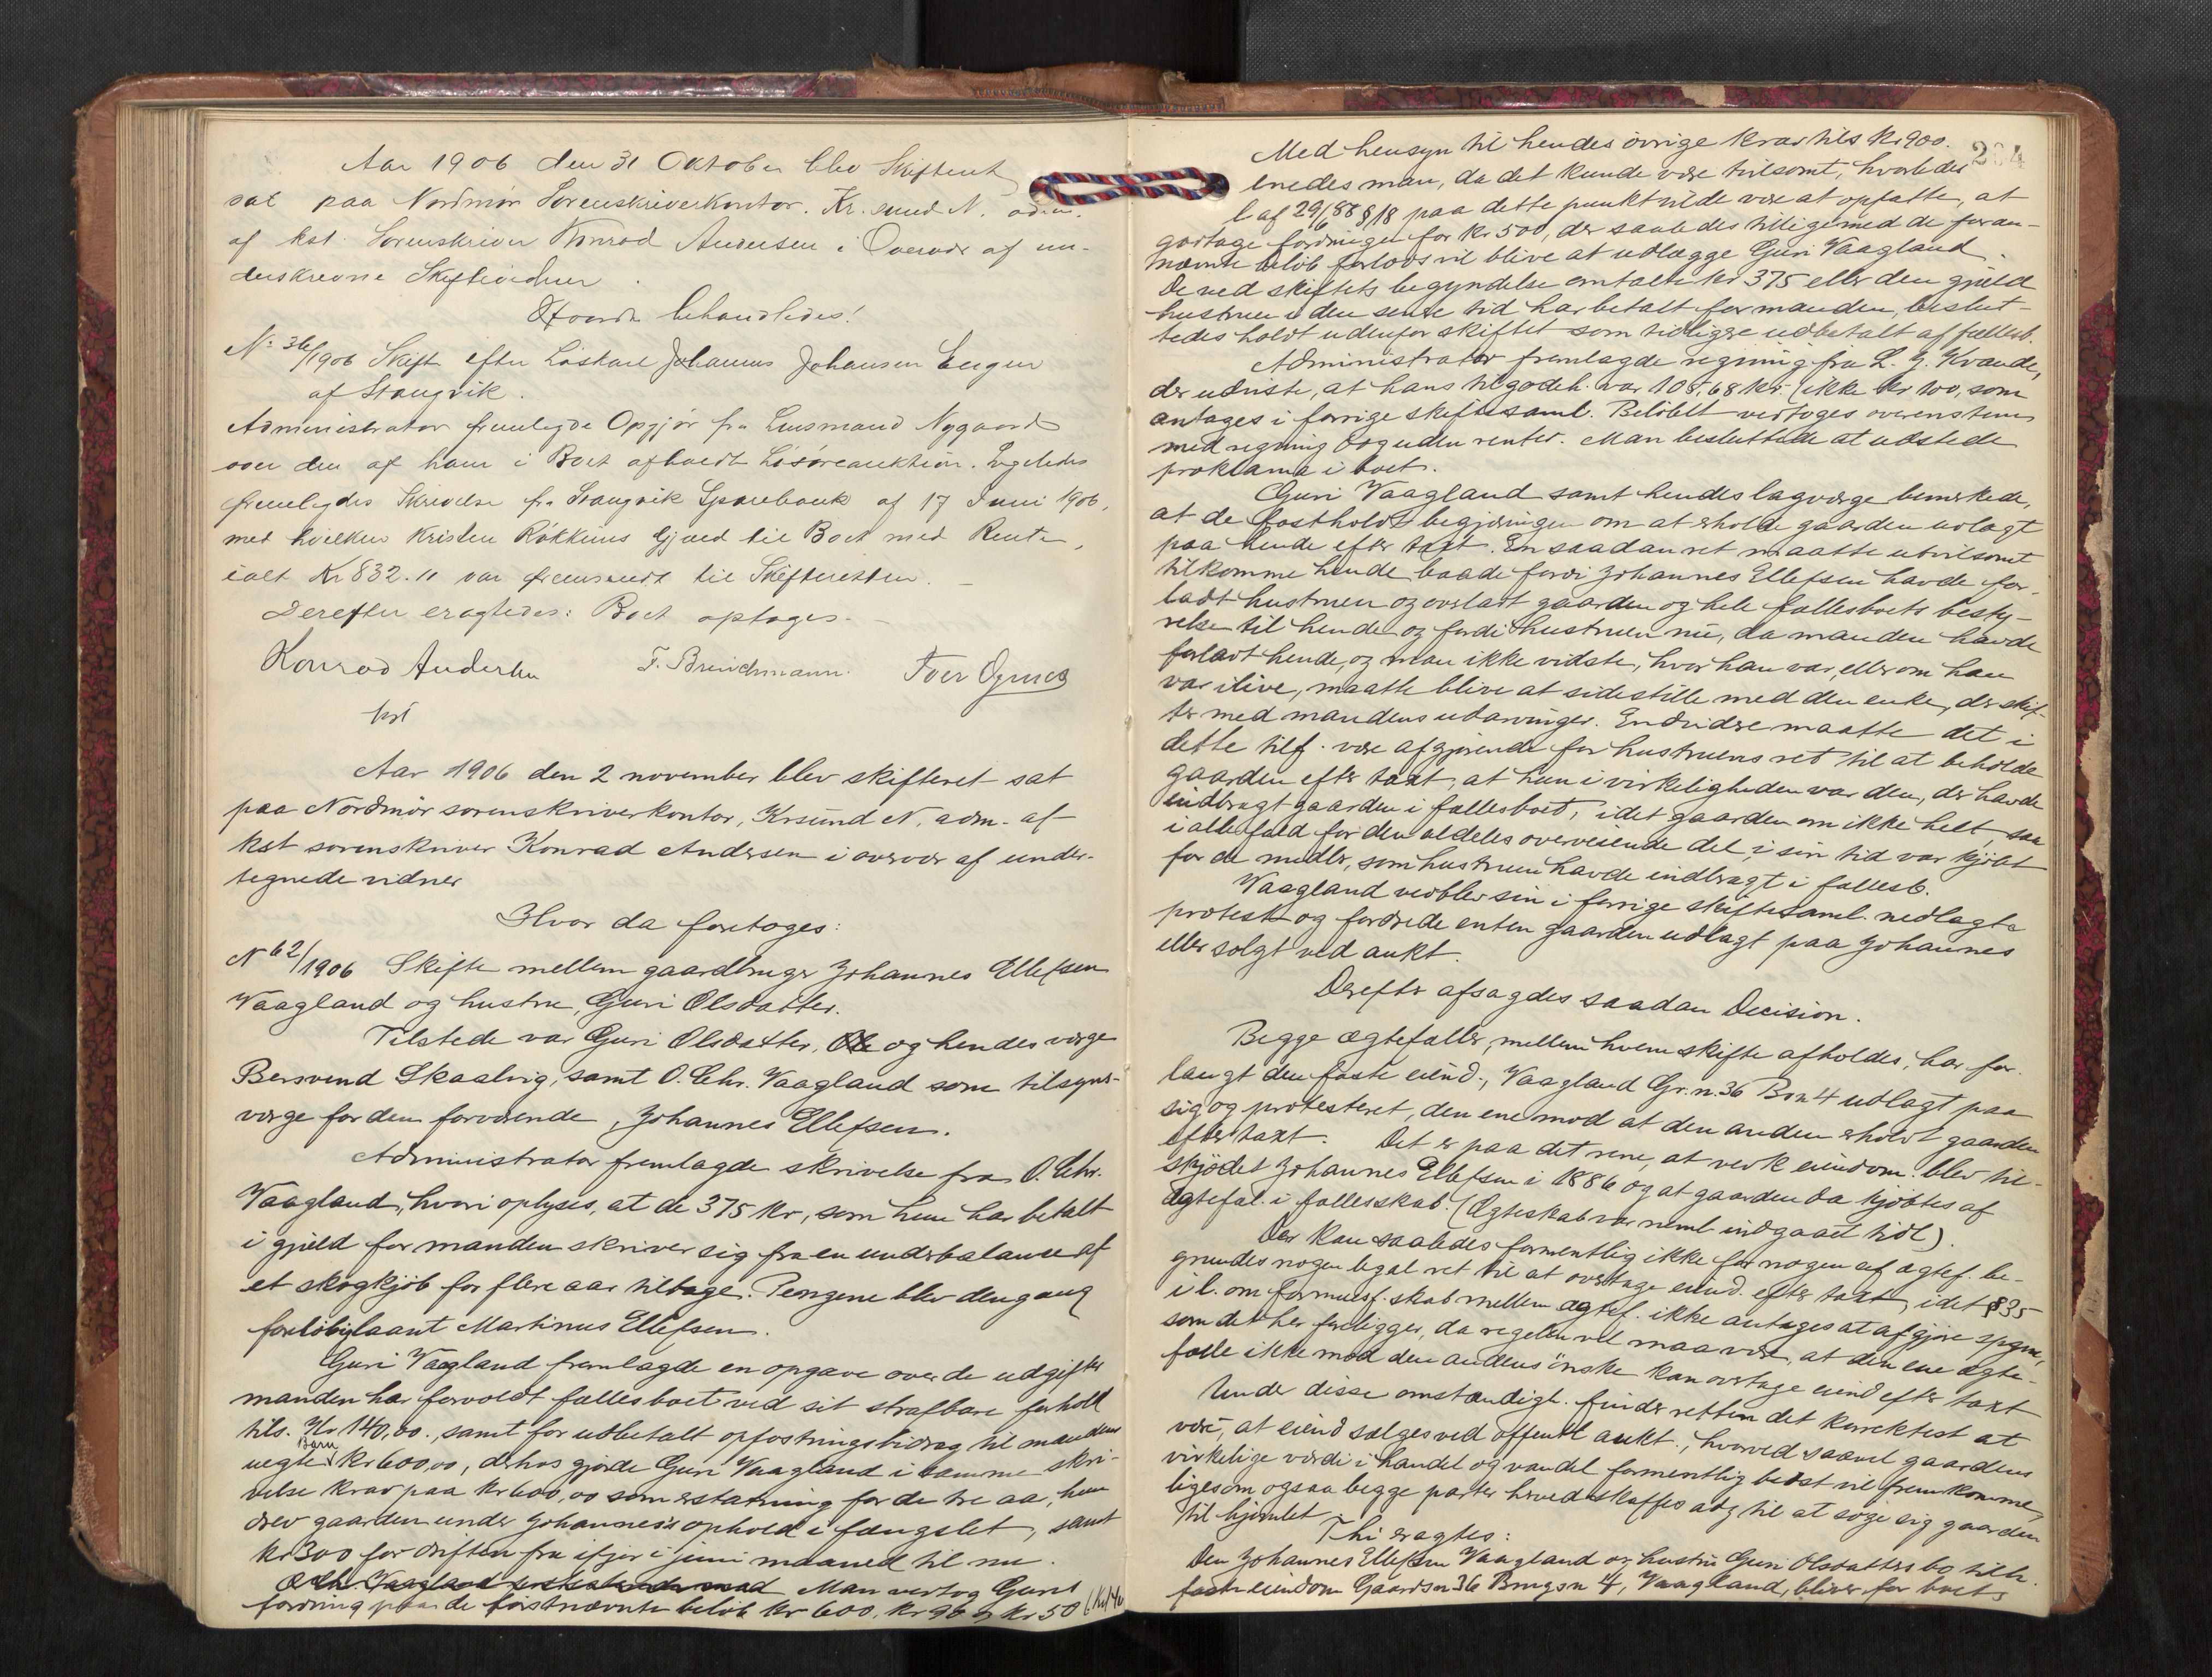 Aar 1906 den 31 Oktober blev Skifteret
sat paa Nordmør Sorenskriverkontor. Kr.sund N. adm.
af kst. Sorenskriver Konrad Andersen i Overvær af un-
derskrevne Skiftevidner.
Hvorda behandledes!
No 36/1906 Skifte efter Løskarl Johannes Johansen
af Stangvik.
Administrator fremlagde Opgjør fra Lensmand Nygaard
over den af ham i Boet afholdt Løsøreauktion. Ligeledes
fremlagdes Skrivelse fra Stangvik Sparebank af 17 Juni 1906,
med hvilken Kristen Røkkums Gjæld til Boet med Renter,
ialt Kr 832.11 var fremsendt til Skifteretten.
Derefter eragtedes: Boet optages.
Konrad Andersen
kst
Aar 1906 den 2 november blev skifteret sat
paa Nordmør sorenskriverkontor, Krsund N. adm. af
kst sorenskriver Konrad Andersen i overvær af under-
tegnede vidner
Hvor da foretoges:
N 62/1906 Skifte mellem gaardbruger Johannes Ellefsen
Vaagland og hustru, Guri Olsdatter.
Tilstede var Guri Olsdatter, og hendes værge
Bersvend Skaalvig, samt O. Chr. Vaagland som tilsyns-
værge for den fraværende, Johannes Ellefsen.
Administrator fremlagde skrivelse fra O. Chr.
Vaagland, hvori oplyses, at de 375 kr, som hun har betalt
i gjæld for manden skriver sig fra en underbalance af
et skogkjøb for flere aar tilbage. Pengene blev dengang
foreløbig laant Martinus Ellefsen.
Guri Vaagland fremlagde en opgave over de udgifter
manden har forvoldt fællesboet ved sit strafbare forhold
tils. Kr 140,00, samt for udbetalt opfostringsbidrag til mandens
uegte Barn kr 600,00, derhos gjorde Guri Vaagland i samme skri-
velse krav paa kr 600,00 som erstatning for de tre aar, hun
drev gaarden under Johannes's ophold i fængslet, samt
kr 300 for driften fra ifjor i juni maaned til nu.
Man vedtog Guris
fordring paa de førstnævnte beløb kr 600, kr 90 og kr 50
204
Med hensyn til hendes øvrige krav tils kr 900.
enedes man, da det kunde være tvilsomt, hvorledes
l af 29/6 88 § 18 paa dette punkt vilde være at opfatte, at
godtage fordringen for kr 500, der saaledes tilligemed de foran-
nævnte beløb forlods vil blive at udlægge Guri Vaagland.
De ved skiftets begyndelse omtalte kr 375 eller den gjæld
hustruen i den senere tid har betalt for manden, beslut-
tedes holdt udenfor skiftet som tidligere udbetalt af fællesb.
Administrator fremlagde regning fra L. J. Kvande,
der udviste, at hans tilgodeh. var 108,68 kr. (ikke kr 100, som
antages i forrige skiftesaml. Beløbet vedtoges overensstem
med regning og uden renter. Man besluttede at udstede
proklama i boet.
Guri Vaagland samt hendes lagværge bemerkede,
at de fastholdt begjæringen om at erholde gaarden udlagt
paa hende efter taxt. En saadan ret maatte utvilsomt
tilkomme hende baade fordi Johannes Ellefsen havde for-
ladt hustruen og overladt gaarden og hele fællesboets besty-
relse til hende og fordi hustruen nu, da manden havde
forladt hende, og man ikke vidste, hvor han var, eller om han
var ilive, maatte blive at sidestille med den enke, der skif-
ter med mandens utarvinger. Endvidere maatte det i
dette tilf. være afgjørende for hustruens ret til at beholde
gaarden efter taxt, at hun i virkeligheden var den, der havde
indbragt gaarden i fællesboet, idet gaarden om ikke helt, saa
i allefald for den aldeles overveiende del, i sin tid var kjøbt
for de midler, som hustruen havde indbragt i fællesb.
Vaagland vedblev sin i forrige skiftesaml. nedlagte
protest og fordrede enten gaarden udlagt paa Johannes
eller solgt ved aukt.
Derefter afsagdes saadan Decision.
Begge ægtefæller, mellem hvem skifte afholdes, har for-
langt den faste eiend., Vaagland Gr.n. 36 Br.n 4 udlagt paa
sig og protesteret, den ene mod at den anden erholdt gaarden
efter taxt. Det er paa det rene, at vedk eiendom blev til-
skjødet Johannes Ellefsen i 1886 og at gaarden da kjøbtes af
ægtefæl. i fællesskab. (Ægteskab var neml indgaaet tidl).
Der kan saaledes formentlig ikke for nogen af ægtef. be-
grundes nogen legal ret til at overtage eiend. efter taxt, idet § 35
i l. om formuesf.skab mellem ægtef. ikke antages at afgjøre spgm,
som det her foreligger, da regelen vel maa være, at den ene ægte-
fælle ikke mod den andens ønske kan overtage eiend efter taxt
Under disse omstændigh. finder retten det korrektest at
være, at eiend sælges ved offentl aukt., hvorved saavel gaardens
virkelige værdi i handel og vandel formentlig bedst vil fremkomme,
ligesom ogsaa begge parter herved skaffes adg til at søge sig gaarden
til hjemlet.
Thi eragtes:
Den Johannes Ellefsen Vaagland og hustru Guri Olsdatters bo tilh.
faste eiendom Gaardsn 36 Brugsn 4, Vaagland, bliver for boets